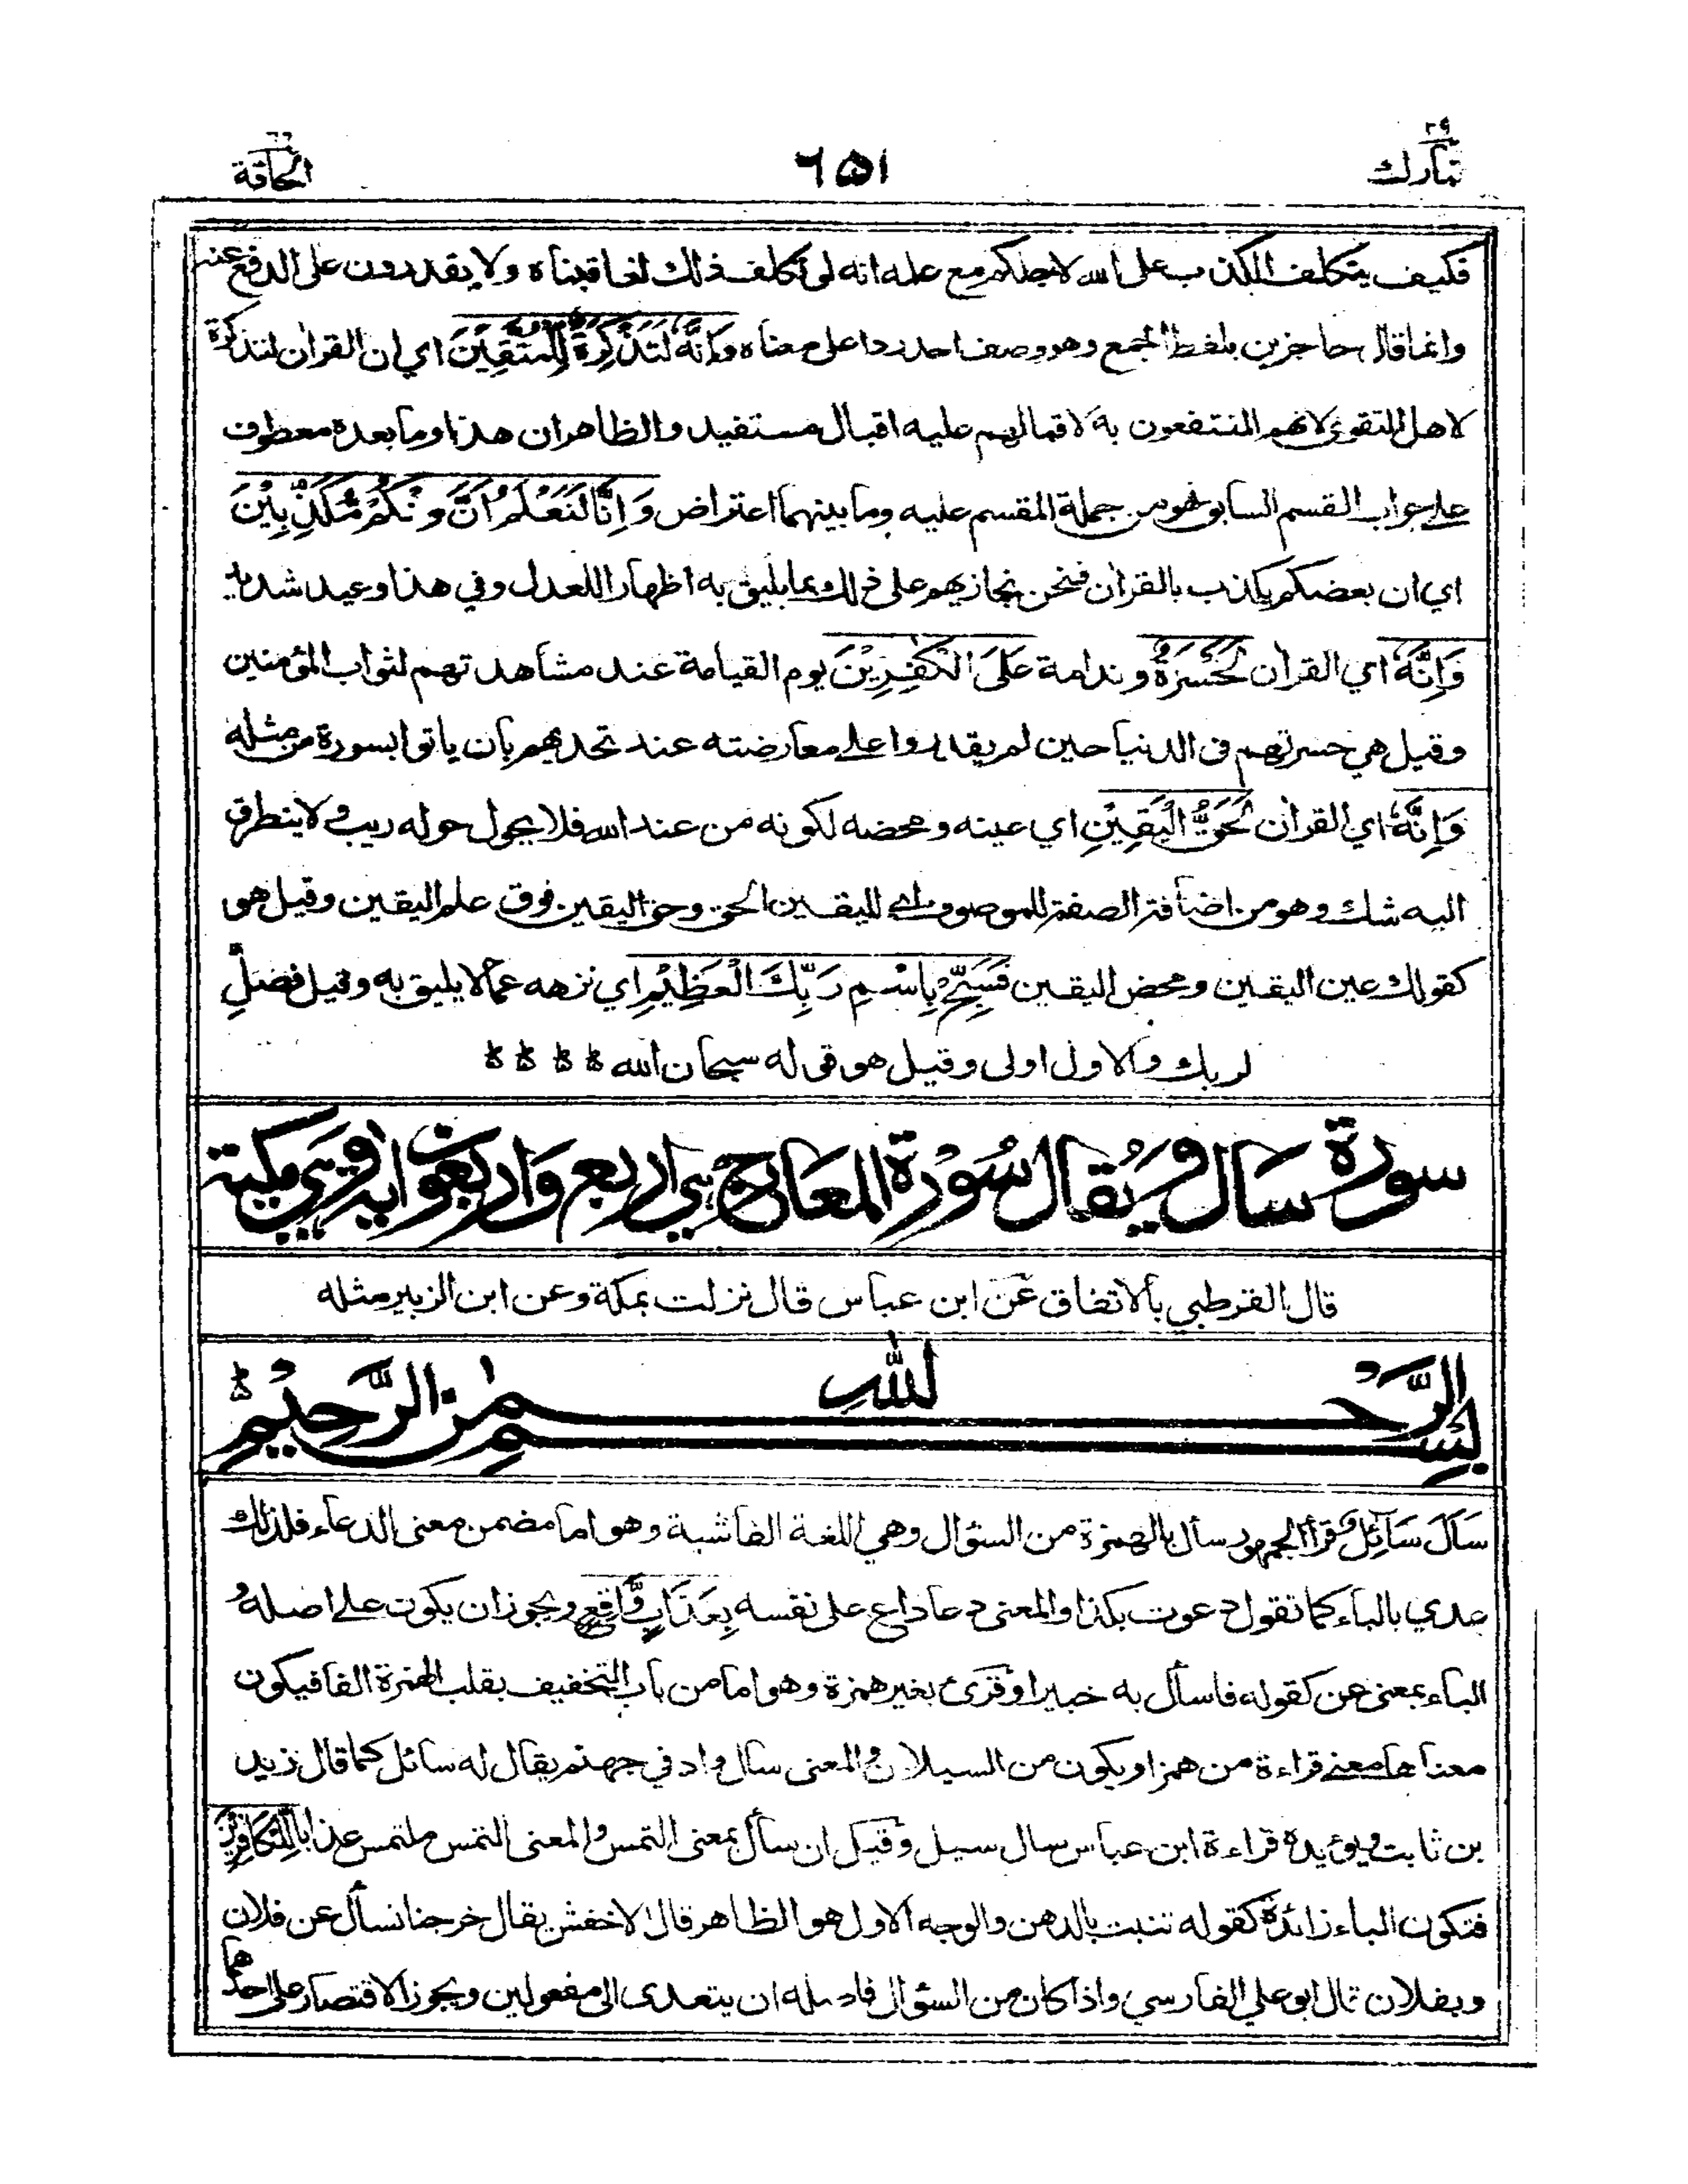 ٢٩
تبارك
٦٥١
الحاقة
فكيف يتكلف الكذب على الله لاجلكم مع علمه انه لو تكلف ذلك لعاقبناه ولا يقدرون على الدفع عنه
وانما قال حاجزين بلفظ الجمع وهو وصف احد ردا على معناه وَاِنَّهٗ لَتَذْكِرَةٌ لِّلْمُتَّقِيْنَ اي ان القران لتذكرة
لاهل التقوى لانهم المنتفعون به لاقبالهم عليه اقبال مستفيد والظاهر ان هذا وما بعده معطوف
على جواب القسم السابق فهو من جملة المقسم عليه وما بينهما اعتراض وَاِنَّا لَنَعْلَمُ اَنَّ مِنْكُمْ مُّكَذِّبِيْنَ
اي ان بعضكم يكذب بالقران فنحن نجازيهم على ذلك وبما يليق به اظهارا للعدل وفي هذا وعيد شديد
وَاِنَّهٗ اي القران لَحَسْرَةٌ وندامة عَلَى الْكٰفِرِيْنَ يوم القيامة عند مشاهدتهم لثواب المؤمنين
وقيل هي حسرتهم فى الدنيا حين لم يقدروا على معارضته عند تحديهم بان ياتوا بسورة من مثله
وَاِنَّهٗ اي القران لَحَقُّ الْيَقِيْنِ اي عينه ومحضه لكونه من عند الله فلا يحول حوله ريب ولا يتطرق
اليه شك وهو من اضافة الصفة للموصوف اي لليقين الحق وحق اليقين فوق علم اليقين وقيل هو
كقولك عين اليقين ومحض اليقين فَسَبِّحْ بِاسْمِ رَبِّكَ الْعَظِيْمِ اي نزهه عما لا يليق به وقيل فصل
لربك والاول اولى وقيل هو قوله سبحان الله
سورة سال ويقال سُوْرة المعارج هي اربع واربعون اية وهي مكية
قال القرطبي بالاتفاق عن ابن عباس قال نزلت بمكة وعن ابن الزبير مثله
بسم الله الرَّحمٰن الرَّحِيْم
سَاَلَ سَآئِلٌ قرأ الجمهور سأل بالهمزة من السؤال وهي اللغة الفاشية وهو اما مضمن معنى الدعاء فلذلك
عدي بالباء كما تقول دعوت بكذا والمعنى دعا داع على نفسه بِعَذَابٍ وَّاقِعٍ ويجوز ان يكون على اصله و
الباء بمعنى عن كقوله فاسأل به خبيرا وقرئ بغير همزة وهو اما من باب التخفيف بقلب الهمزة الفا فيكون
معناها معنى قراءة من همز او يكون من السيلان والمعنى سال واد في جهنم يقال له سائل كما قال زيد
بن ثابت ويؤيده قراءة ابن عباس سال سيل وقيل ان سأل بمعنى التمس والمعنى التمس ملتمس عذابا لِّلْكَافِرِيْنَ
فتكون الباء زائدة كقوله تنبت بالدهن والوجه الاول هو الظاهر قال الاخفش يقال خرجنا نسأل عن فلان
وبفلان قال ابو علي الفارسي واذا كان من السؤال فاصله ان يتعدى الى مفعولين ويجوز الاقتصار على احدهما